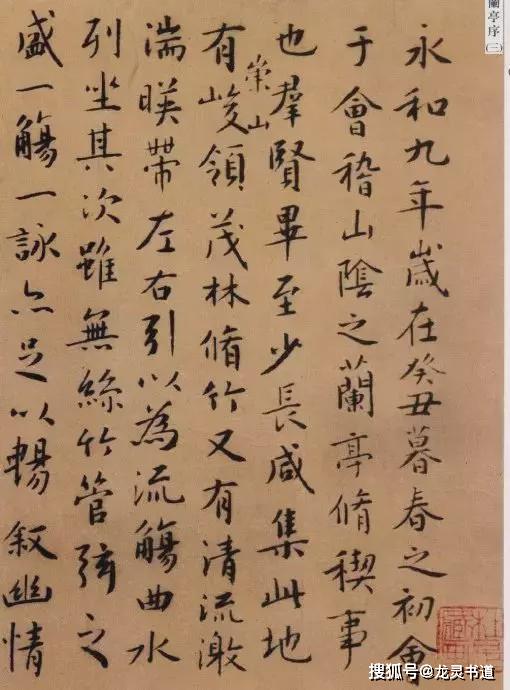 蘭亭序(三)
永和九年歲在癸丑暮春之初會
于會稽山陰之蘭亭脩稧事
也羣賢畢至少長咸集此地
有崇山峻領茂林脩竹又有清流激
湍暎帶左右引以為流觴曲水
列坐其次雖無絲竹管弦之
盛一觴一詠亦足以暢敘幽情
搜狐号@龙灵书道